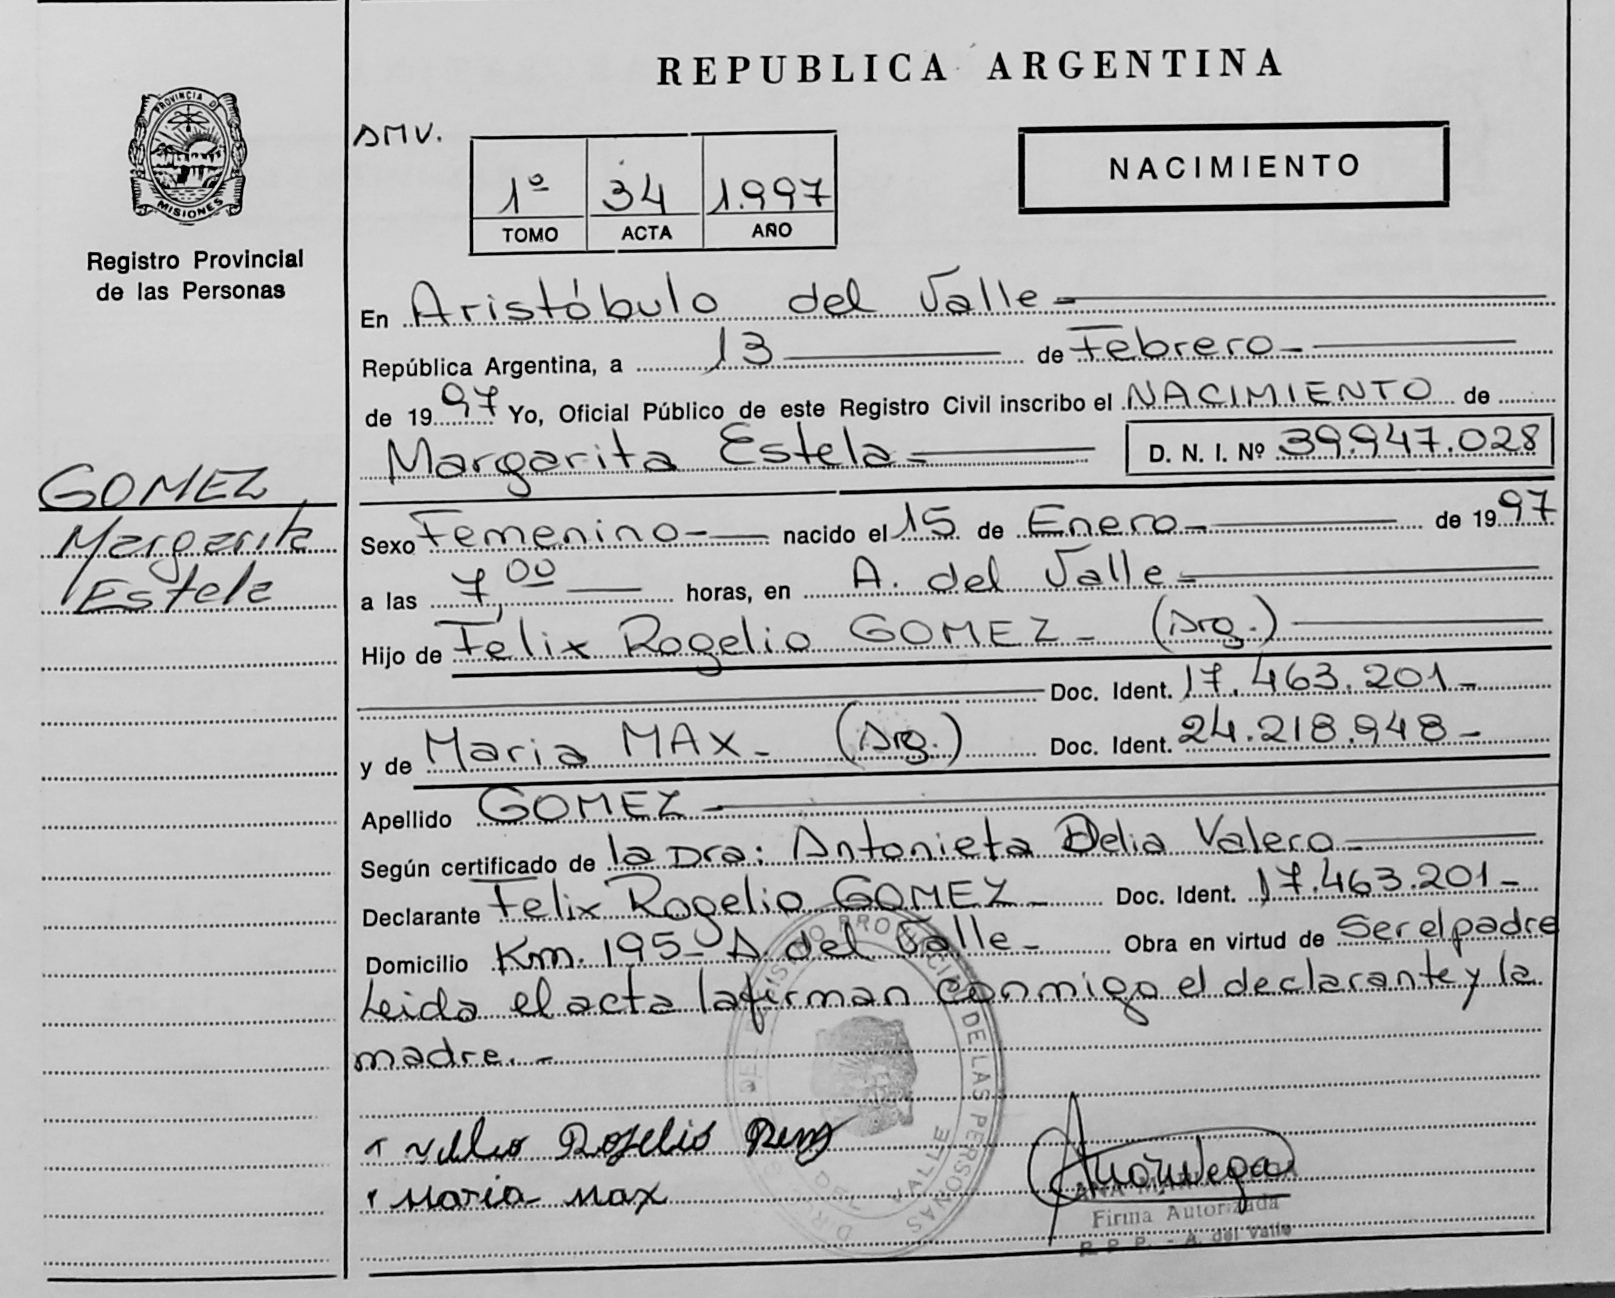 REPUBLICA ARGENTINA
PROVINCIA D
MISIONES
Registro Provincial
de las Personas
DMV.
1º 34 1.997
TOMO ACTA AÑO
NACIMIENTO
En Aristóbulo del Valle-
República Argentina, a 13 de Febrero-
de 1997 Yo, Oficial Público de este Registro Civil inscribo el NACIMIENTO de
Margarita Estela- D. N. I. Nº 39.947.028
GOMEZ
Margarita
Estela
Sexo Femenino- nacido el 15 de Enero- de 1997
a las 7,00 horas, en A. del Valle-
Hijo de Felix Rogelio GOMEZ- (Arg.)
Doc. Ident. 17.463.201-
y de Maria MAX- (Arg.) Doc. Ident. 24.218.948-
Apellido GOMEZ-
Según certificado de la Dra: Antonieta Delia Valero-
Declarante Felix Rogelio GOMEZ- Doc. Ident. 17.463.201-
Domicilio Km. 195- A. del Valle- Obra en virtud de Ser el padre
Leida el acta la firman conmigo el declarante y la
madre.-
Rogelio
Maria Max
DE LAS PERSONAS
VALLE
ANA
Firma Autorizada
R. P. P. - A. del Valle